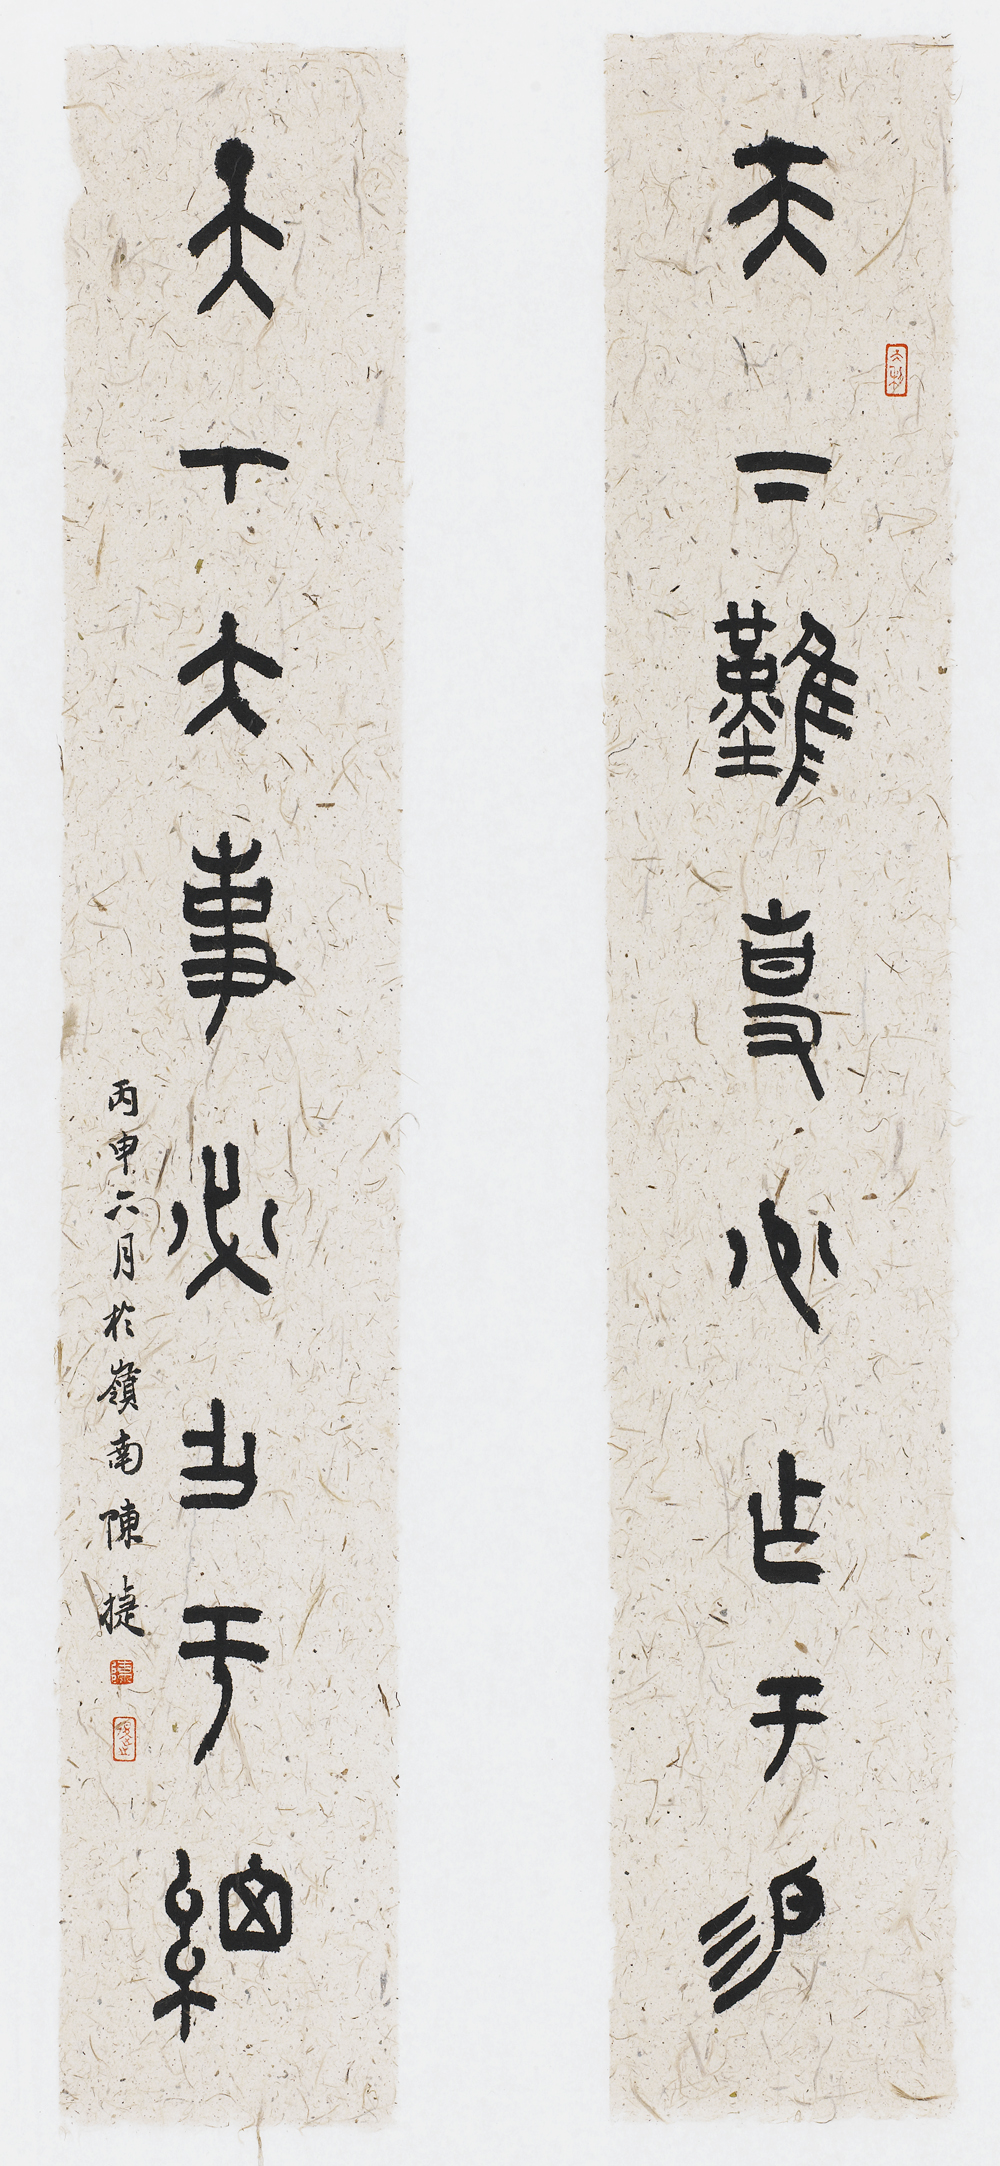 天下難事必作于易
天下大事必作于細
丙申六月於嶺南陳捷
陳